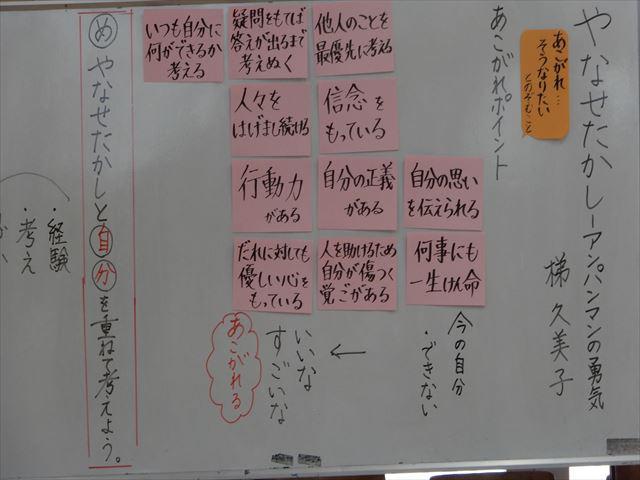 やなせたかしーアンパンマンの勇気
梯 久美子
あこがれ…
そうなりたい
とのぞむこと
あこがれポイント
他人のことを
最優先に考える
疑問をもてば
答えが出るまで
考えぬく
いつも自分に
何ができるか
考える
信念を
もっている
人々を
はげまし続ける
自分の思い
を伝えられる
自分の正義
がある
行動力
がある
何事にも
一生けん命
人を助けるため
自分が傷つく
覚ごがある
だれに対しても
優しい心を
もっている
今の自分
・できない
←
いいな
すごいな
あこがれる
め やなせたかしと自分を重ねて考えよう。
・経験
・考え